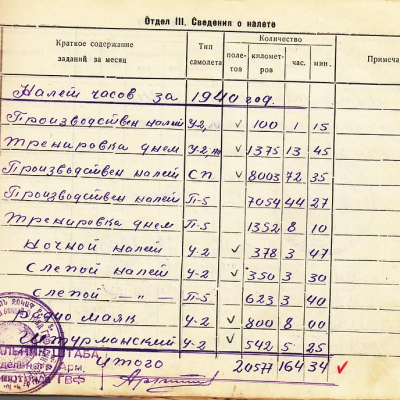 Отдел III. Сведения о налете
Краткое содержание заданий за месяц | Тип самолета | Количество | Примеча
поле-тов | километ-ров | час. | мин.
Налет часов за 1940 год.
Производствен налет У-2, v 100 1 15
Тренировка днем У-2, v 1375 13 45
Производствен налет СП v 8003 72 35
Производствен налет П-5 7054 44 27
Тренировка днем П-5 1352 8 10
Ночной налет У-2 v 378 3 47
Слепой налет У-2 v 350 3 30
слепой — " — П-5 623 3 40
Радио маяк У-2 v 800 8 00
Штурманский У-2 v 542 5 25
Итого 20577 164 34 ✓
ШТАБА
Арм.
ГВФ